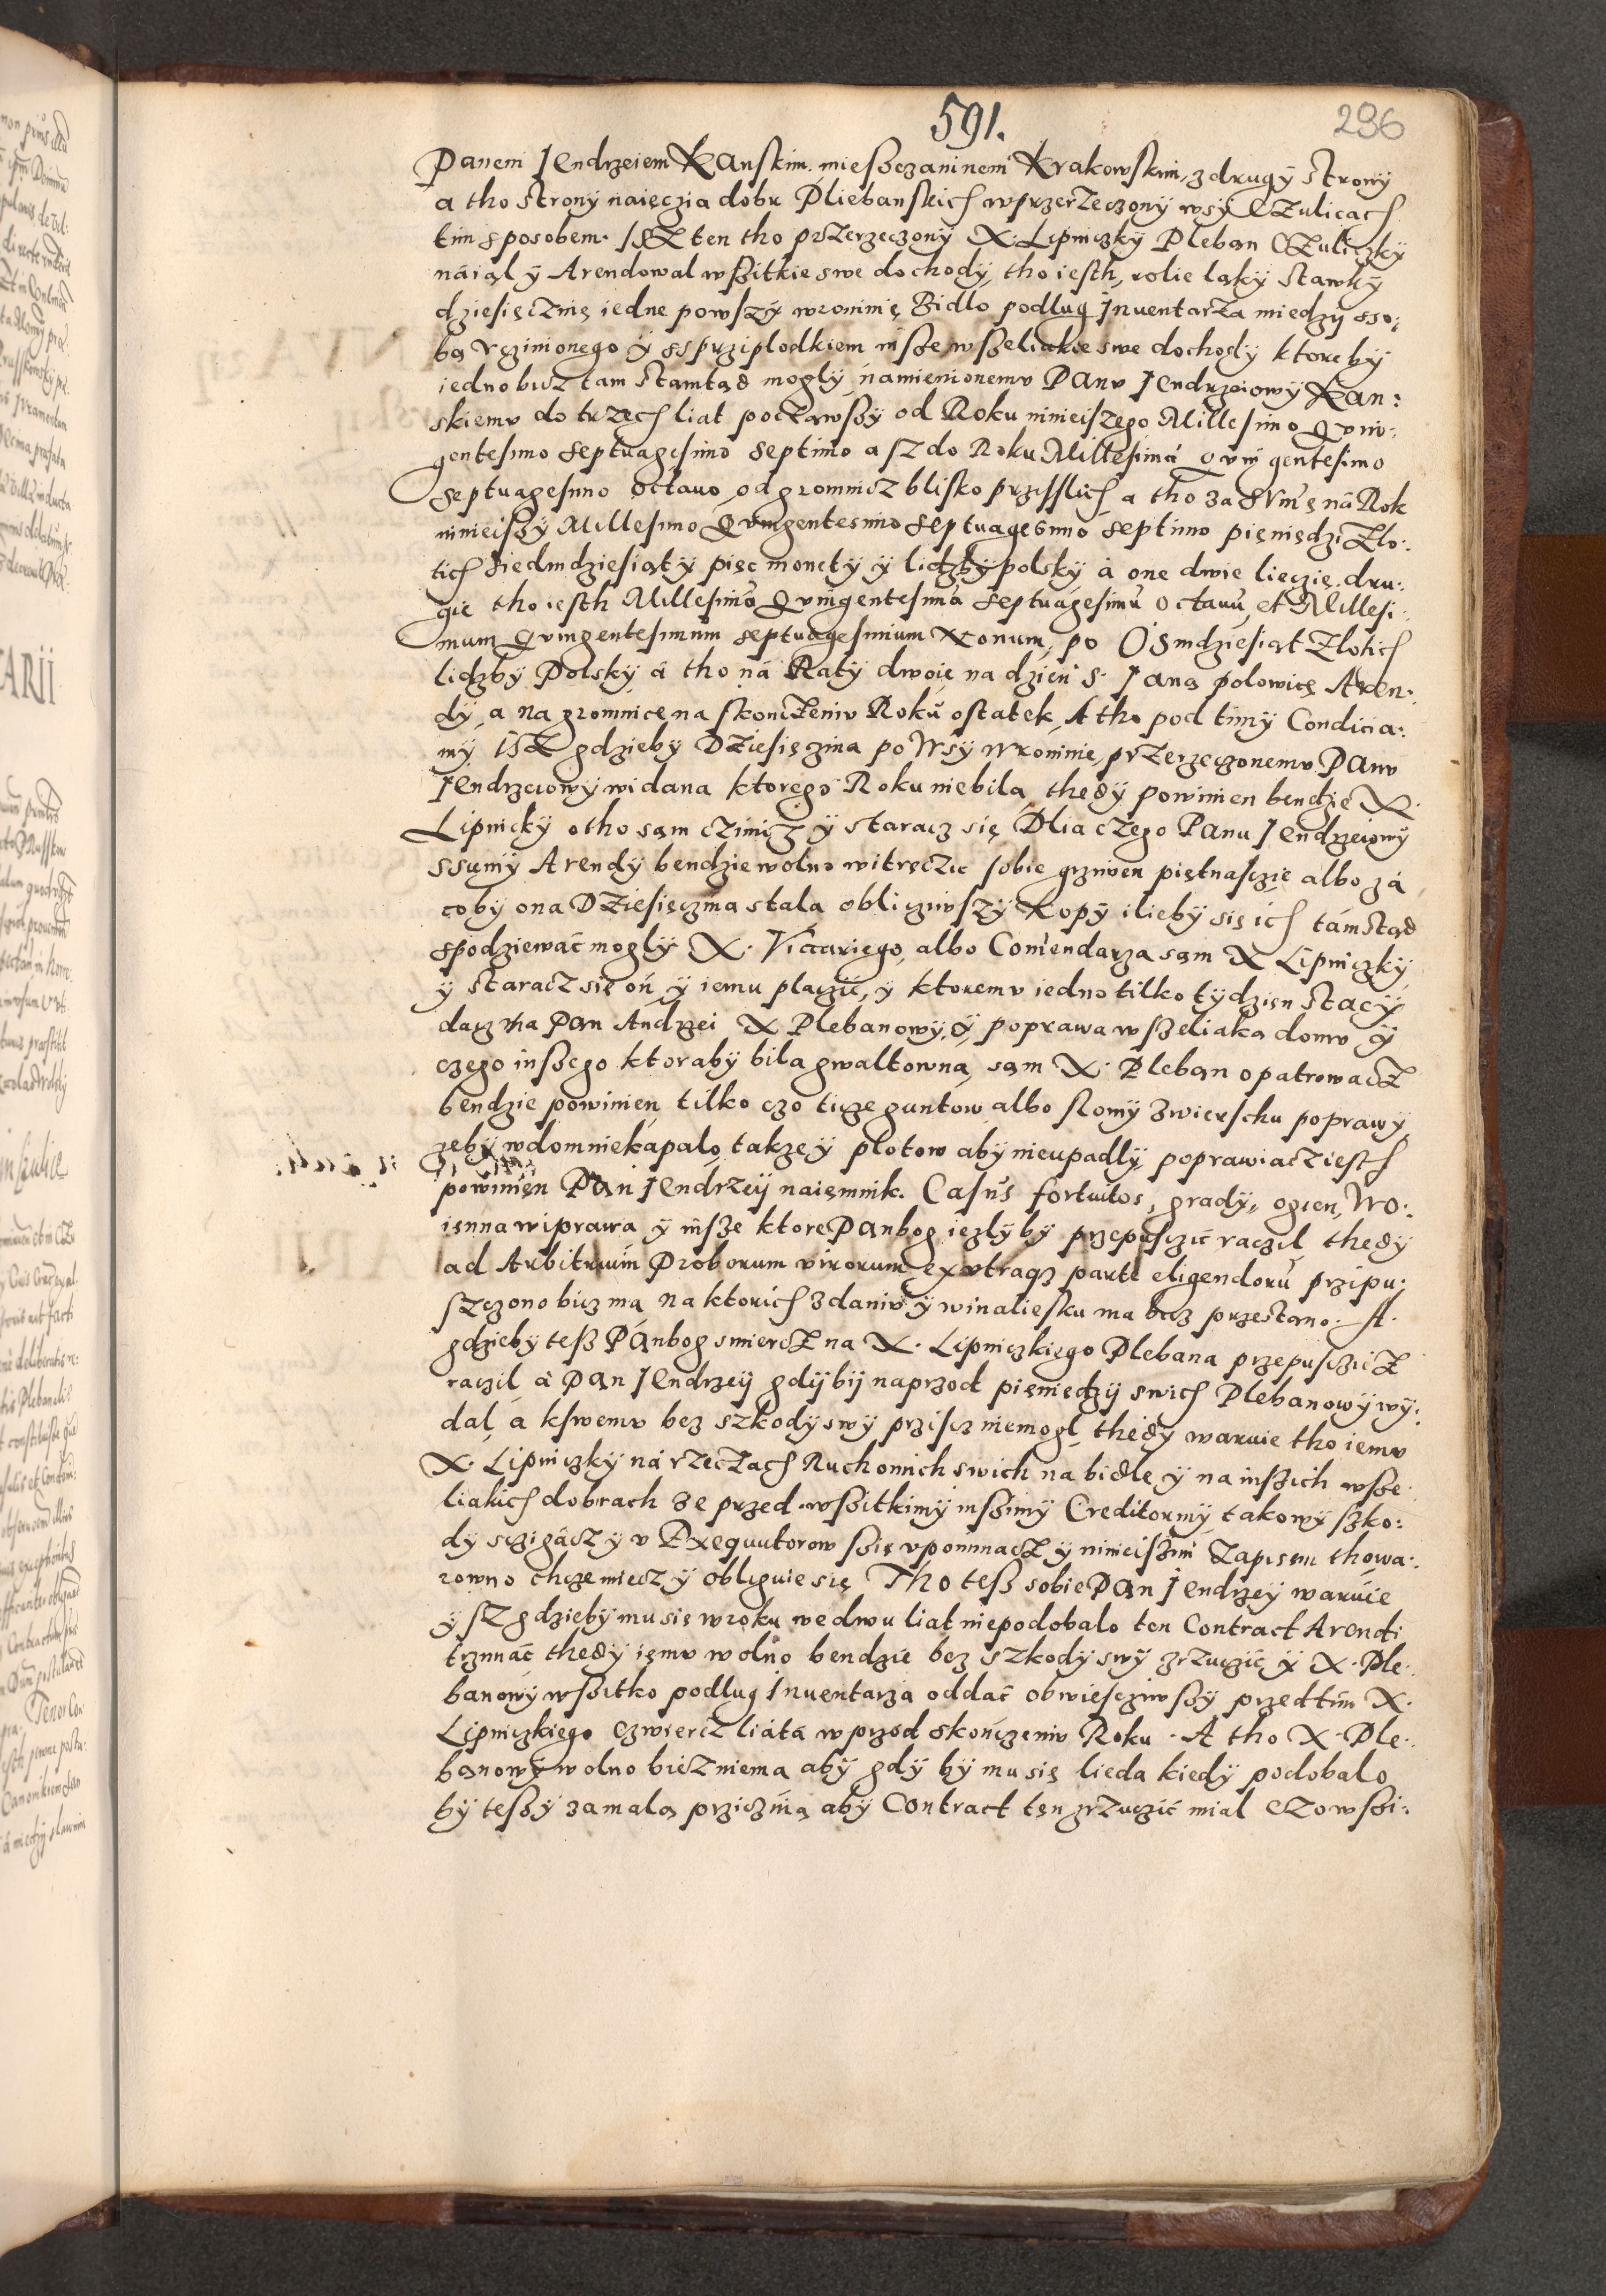 591.
296
Panem Jendrzeiem Kanskim mießczaninem Krakowskim, z drugÿ stronÿ
a tho stronÿ naięczia dobr Pliebanskich w przerzeczonÿ wsÿ Czulicach
tim sposobem. Isz ten tho przerzeczonÿ X. Lipniczkÿ Pleban Czuliczkÿ
náiął ÿ Arendowal wßitkie swe dochodÿ, tho iesth, rolie lakÿ stawkÿ
dziesięczinę iedne powszÿ wroninię Bidlo podlug Inuentarza miedzÿ sso:
bą vczinionego ÿ s prziplodkiem insze wßeliakie swe dochodÿ ktore bÿ
iedno bicz tam stamtąd moglÿ namienionemv Panv Jendrzeiowÿ Kan:
skiemv do trzech liat począwßÿ od Roku ninieiszego Millesimo Qvin:
gentesimo septuagesimo septimo asz do Roku Millesimá qvin gentesimo
septuagesimo octauo od gromnicz blisko przisslich a tho za svmę ná Rok
ninieißÿ Millesimo Qvingentesimo septuagesimo septimo pieniędzi Zlo:
tich siedmdziesiątÿ pięc monetÿ ÿ liczbÿ polskÿ á one dwie liecie dru:
gie tho iesth Millesimú Qvingentesimú septuagesimú octauú, et Millesi:
mum Qvingentesimum septuagesimum nonum, po Osmdziesiąt Zlotich
lidzbÿ Polskÿ á tho ná Ratÿ dwoie na dzień S. Janá polowicę Aren:
dÿ, a na gromnice na skonczeniv Rokú ostatek, A tho pod timÿ Condicia:
mÿ isz gdziebÿ Dziesięczina po Wsÿ Wroninie, przerzeczonemv Panv
Jendrzeiowÿ widana ktorego Roku niebila, thedÿ powinien bendzie X.
Lipnickÿ o tho sąm czinicz ÿ staracz się, Dlia czego Panu Jendrzeiowÿ
ssumÿ Arendÿ bendzie wolno witręczic sobie grziwen piętnasczie albo zá
cobÿ ona Dziesięczina stala obliczÿwszÿ kopÿ iliebÿ się ich támstąd
spodziewác moglÿ. X. Vicariego albo Comendarza sąm X Lipniczkÿ
ÿ staracz się oń ÿ iemu placzić, ÿ ktoremv iedno tilko tÿdzien stacÿÿ
dacz ma Pan Andrzei X Plebanowÿ, ÿ poprawa wßeliaka domv ÿ
czego inßego ktorabÿ bila gwaltowna, sąm X. Pleban opatrowacz
bendzie powinien, tilko czo ticze guntow albo slomÿ zwierschu poprawÿ
zebÿ w dom niekápalo, takze ÿ plotow abÿ nieupadlÿ, poprawiacz iesth
powinien Pan Jendrzeij naięmnik. Casús fortuitos, gradÿ, ogien, Wo:
iennna wiprawa ÿ insze ktore Panbog iezlÿbÿ przepusczić raczil, thedÿ
ad Arbitrium Proborum virorum ex vtraqz parte eligendorú przipu:
szczono bicz ma, na ktorich zdaniv ÿ winaliesku ma bicz przestano. A.
gdziebÿ teß Pánbog smiercz na X. Lipniczkiego Plebana przepusczicz
raczil á Pan Jendrzeij gdÿbij naprzod pieniedzij swich Plebanowÿ wÿ:
dal, á kswemv bez szkodÿ swÿ przisz niemogl, thedÿ waruie tho iemv
X. Lipniczkÿ ná rzeczach Ruchomich swich na bidle ÿ na inßich wße:
liakich dobrach ze przed wßitkimÿ inßimÿ Creditormÿ takowÿ szko:
dÿ scziga̧cz ÿ v Exequutorow ßię vpominacz ÿ ninieißim Zapisem thowa:
rowno chcze miecz ÿ obliguie się, Tho teß sobie Pan Jendrzeÿ waruie
ÿsz gdziebÿ mu się w roku we dwu liat niepodobalo ten Contract Arendi
trzÿmác thedÿ iemv wolno bendzie bez szkodÿ swÿ zrzuczić ÿ X. Ple:
banowÿ wßitko podlug Inuentarza oddać obwiescziwßÿ przedtim X.
Lipniczkiego czwiercz liátá wprzód skończeniv Roku. A tho X. Ple:
banowÿ wolno bicz niema abÿ gdÿ bÿ mu się lieda kiedÿ podobalo
bÿ teßÿ zamalą prziczina, abÿ Contract ten zrzuczić mial czo wßi: